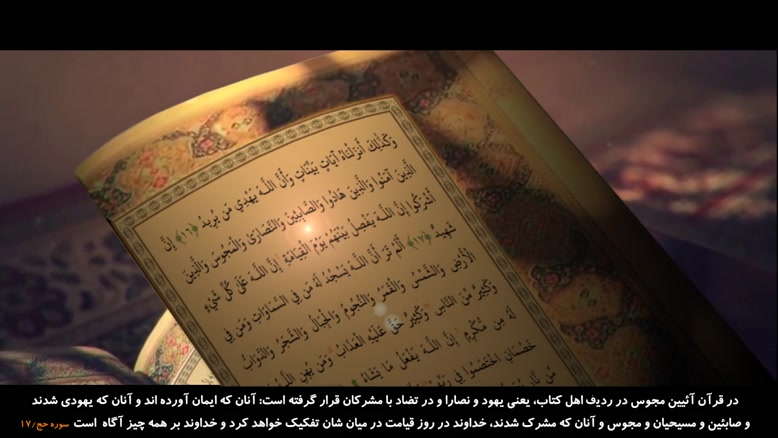 وَكَذَٰلِكَ أَنزَلْنَاهُ آيَاتٍ بَيِّنَاتٍ وَأَنَّ اللَّهَ يَهْدِي مَن يُرِيدُ ﴿١٦﴾ إِنَّ
الَّذِينَ آمَنُوا وَالَّذِينَ هَادُوا وَالصَّابِئِينَ وَالنَّصَارَىٰ وَالْمَجُوسَ وَالَّذِينَ
أَشْرَكُوا إِنَّ اللَّهَ يَفْصِلُ بَيْنَهُمْ يَوْمَ الْقِيَامَةِ إِنَّ اللَّهَ عَلَىٰ كُلِّ شَيْءٍ
شَهِيدٌ ﴿١٧﴾ أَلَمْ تَرَ أَنَّ اللَّهَ يَسْجُدُ لَهُ مَن فِي السَّمَاوَاتِ وَمَن فِي
الْأَرْضِ وَالشَّمْسُ وَالْقَمَرُ وَالنُّجُومُ وَالْجِبَالُ وَالشَّجَرُ وَالدَّوَابُّ
وَكَثِيرٌ مِّنَ النَّاسِ وَكَثِيرٌ حَقَّ عَلَيْهِ الْعَذَابُ وَمَن يُهِنِ اللَّهُ
لَهُ مِن مُّكْرِمٍ إِنَّ اللَّهَ يَفْعَلُ مَا يَشَاءُ
خَصْمَانِ اخْتَصَمُوا فِي
مِّن نَّارٍ
در قرآن آئیین مجوس در ردیف اهل کتاب، یعنی یهود و نصارا و در تضاد با مشرکان قرار گرفته است: آنان که ایمان آورده اند و آنان که یهودی شدند
و صابئین و مسیحیان و مجوس و آنان که مشرک شدند، خداوند در روز قیامت در میان شان تفکیک خواهد کرد و خداوند بر همه چیز آگاه است سوره حج/۱۷